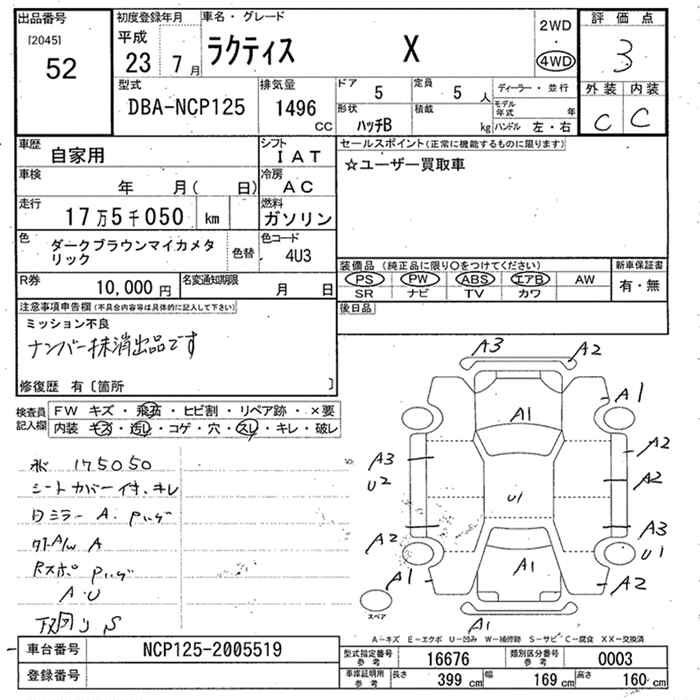 出品番号 初度登録年月 車名・グレード 2WD 評価点
[2045] 平成 ラクティス X 3
52 23 7月 4WD
型式 排気量 ドア 5 定員 5人 ディーラー・並行 外装 内装
DBA-NCP125 1496 cc 形状 ハッチB 積載 kg モデル年式 年 C C
ハンドル 左・右
車歴 自家用 シフト IAT セールスポイント(正常に機能するものに限ります)
車検 年 月( 日) 冷房 AC ☆ユーザー買取車
走行 17万5千050 km 燃料 ガソリン
色 ダークブラウンマイカメタリック 色替 色コード 4U3
装備品(純正品に限り○をつけてください) 新車保証書
R券 10,000円 名変通知期限 月 日 PS PW ABS エアB AW 有・無
SR ナビ TV カワ
注意事項申告欄(不具合内容等は具体的に記入して下さい) 後日品
ミッション不良
ナンバー抹消出品です
修復歴 有〔箇所 〕
検査員記入欄 FW キズ・飛石・ヒビ割・リペア跡・×要
内装 キズ・汚レ・コゲ・穴・スレ・キレ・破レ
175050
シートカバー付、キレ
A3 A2
A1 A1
A3 A2
U2 A2
U1
A2 A3
U1
A1 A1 A2
スペア
A1
A-キズ E-エクボ U-凹み W-補修跡 S-サビ C-腐食 XX-交換済
車台番号 NCP125-2005519
登録番号
型式指定番号 参考 16676 類別区分番号 参考 0003
車庫証明用 参考 長さ 399 cm 幅 169 cm 高さ 160 cm